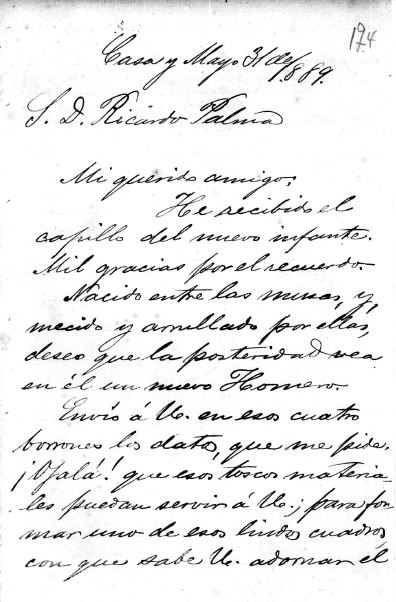 194
Casa y Mayo 31 de/889.
S. D. Ricardo Palma
Mi querido amigo:
He recibido el
capillo del nuevo infante.
Mil gracias por el recuerdo.
Nacido entre las musas, y
mecido y arrullado por ellas,
deseo que la posteridad vea
en él un nuevo Homero.
Envio á U. en esos cuatro
borrones los datos, que me pide.
¡Ojalá! que esos toscos materia-
les puedan servir á U.; para for
mar uno de esos lindos cuadros
con que sabe U. adornar el